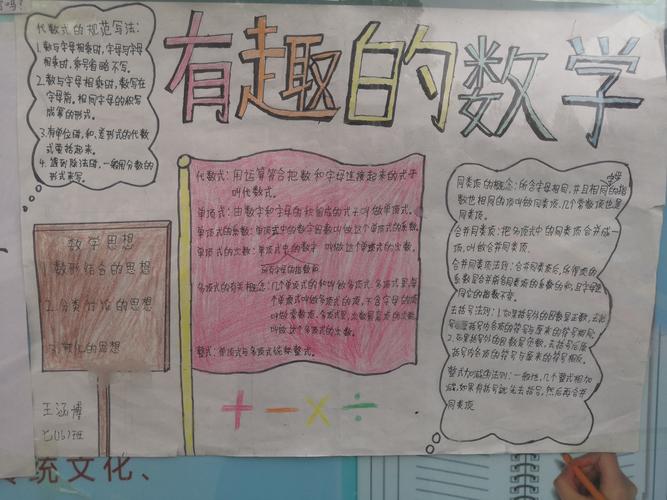 有趣的数学
代数式的规范写法:
1.数与字母相乘时,字母与字母
相乘时,乘号省略不写。
2.数与字母相乘时,数写在
字母前。相同字母的积写
成幂的形式。
3.有单位碰,和、差形式的代数
式要括起来。
4.遇到除法碰,一般用分数的
形式来写。
数学思想
1.数形结合的思想
2.分类讨论的思想
3.转化的思想
王涵博
七(16)班
代数式:用运算符合把数和字母连接起来的式子
叫代数式。
单项式:由数字和字母的积组成的式子叫做单项式。
单项式的系数:单项式中的数字因数叫做这个单项式的系数。
单项式的次数:单项式中的数字 叫做这个单项式的次数。
所有字母的指数和
多项式的有关概念:几个单项式的和叫做多项式。多项式里,每
个单项式叫做多项式的项,不含字母的项
叫做常数项。多项式里,次数最高项的次数,
叫做这个多项式的次数。
整式:单项式与多项式统称整式。
+ − × ÷
字母
同类项的概念:所含字母相同,并且相同的指
数也相同的项叫做同类项。几个常数项也是
同类项。
合并同类项:把多项式中的同类项合并成一
项,叫做合并同类项。
合并同类项法则:合并同类项后,所得项的
系数是合并前各同类项的系数的和,且字母连
同它的指数不变。
去括号法则:1.如果括号外的因数是正数,去括
号后原括号内各项的符号与原来的符号相同;
2.如果括号外的因数是负数,去括号后原
括号内各项的符号与原来的符号相反。
整式加减法则:一般地,几个整式相加
减,如果有括号就先去括号,然后再合并
同类项
统文化、